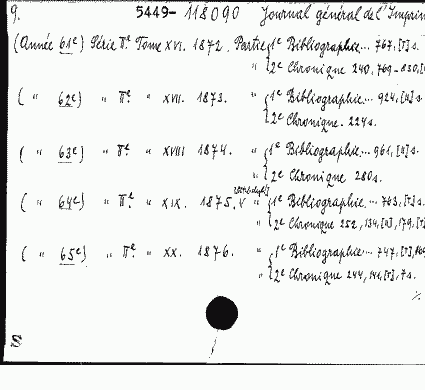 9. 5449-118090 Journal général de l'Imprim
(Année 61e) Série IIe. Tome XVI. 1872. Partie 1e Bibliographie... 767, [1] s.
" 2e Chronique 240, 769-830, [
( " 62e) " IIe. " XVII. 1873. " 1e Bibliographie... 924, [4] s.
2e Chronique. 224 s.
( " 63e) " IIe. " XVIII 1874. " 1e Bibliographie... 961, [4] s.
" 2e Chronique 280 s.
( " 64e) " IIe " XIX. 1875. V " 1e Bibliographie... 763, [1] s.
" 2e Chronique 252, 134, [4], 179, [1]
( " 65e) " IIe. " XX. 1876. " 1e Bibliographie... 747, [1],
" 2e Chronique 244, 141, [1], 7 s.
%.
S